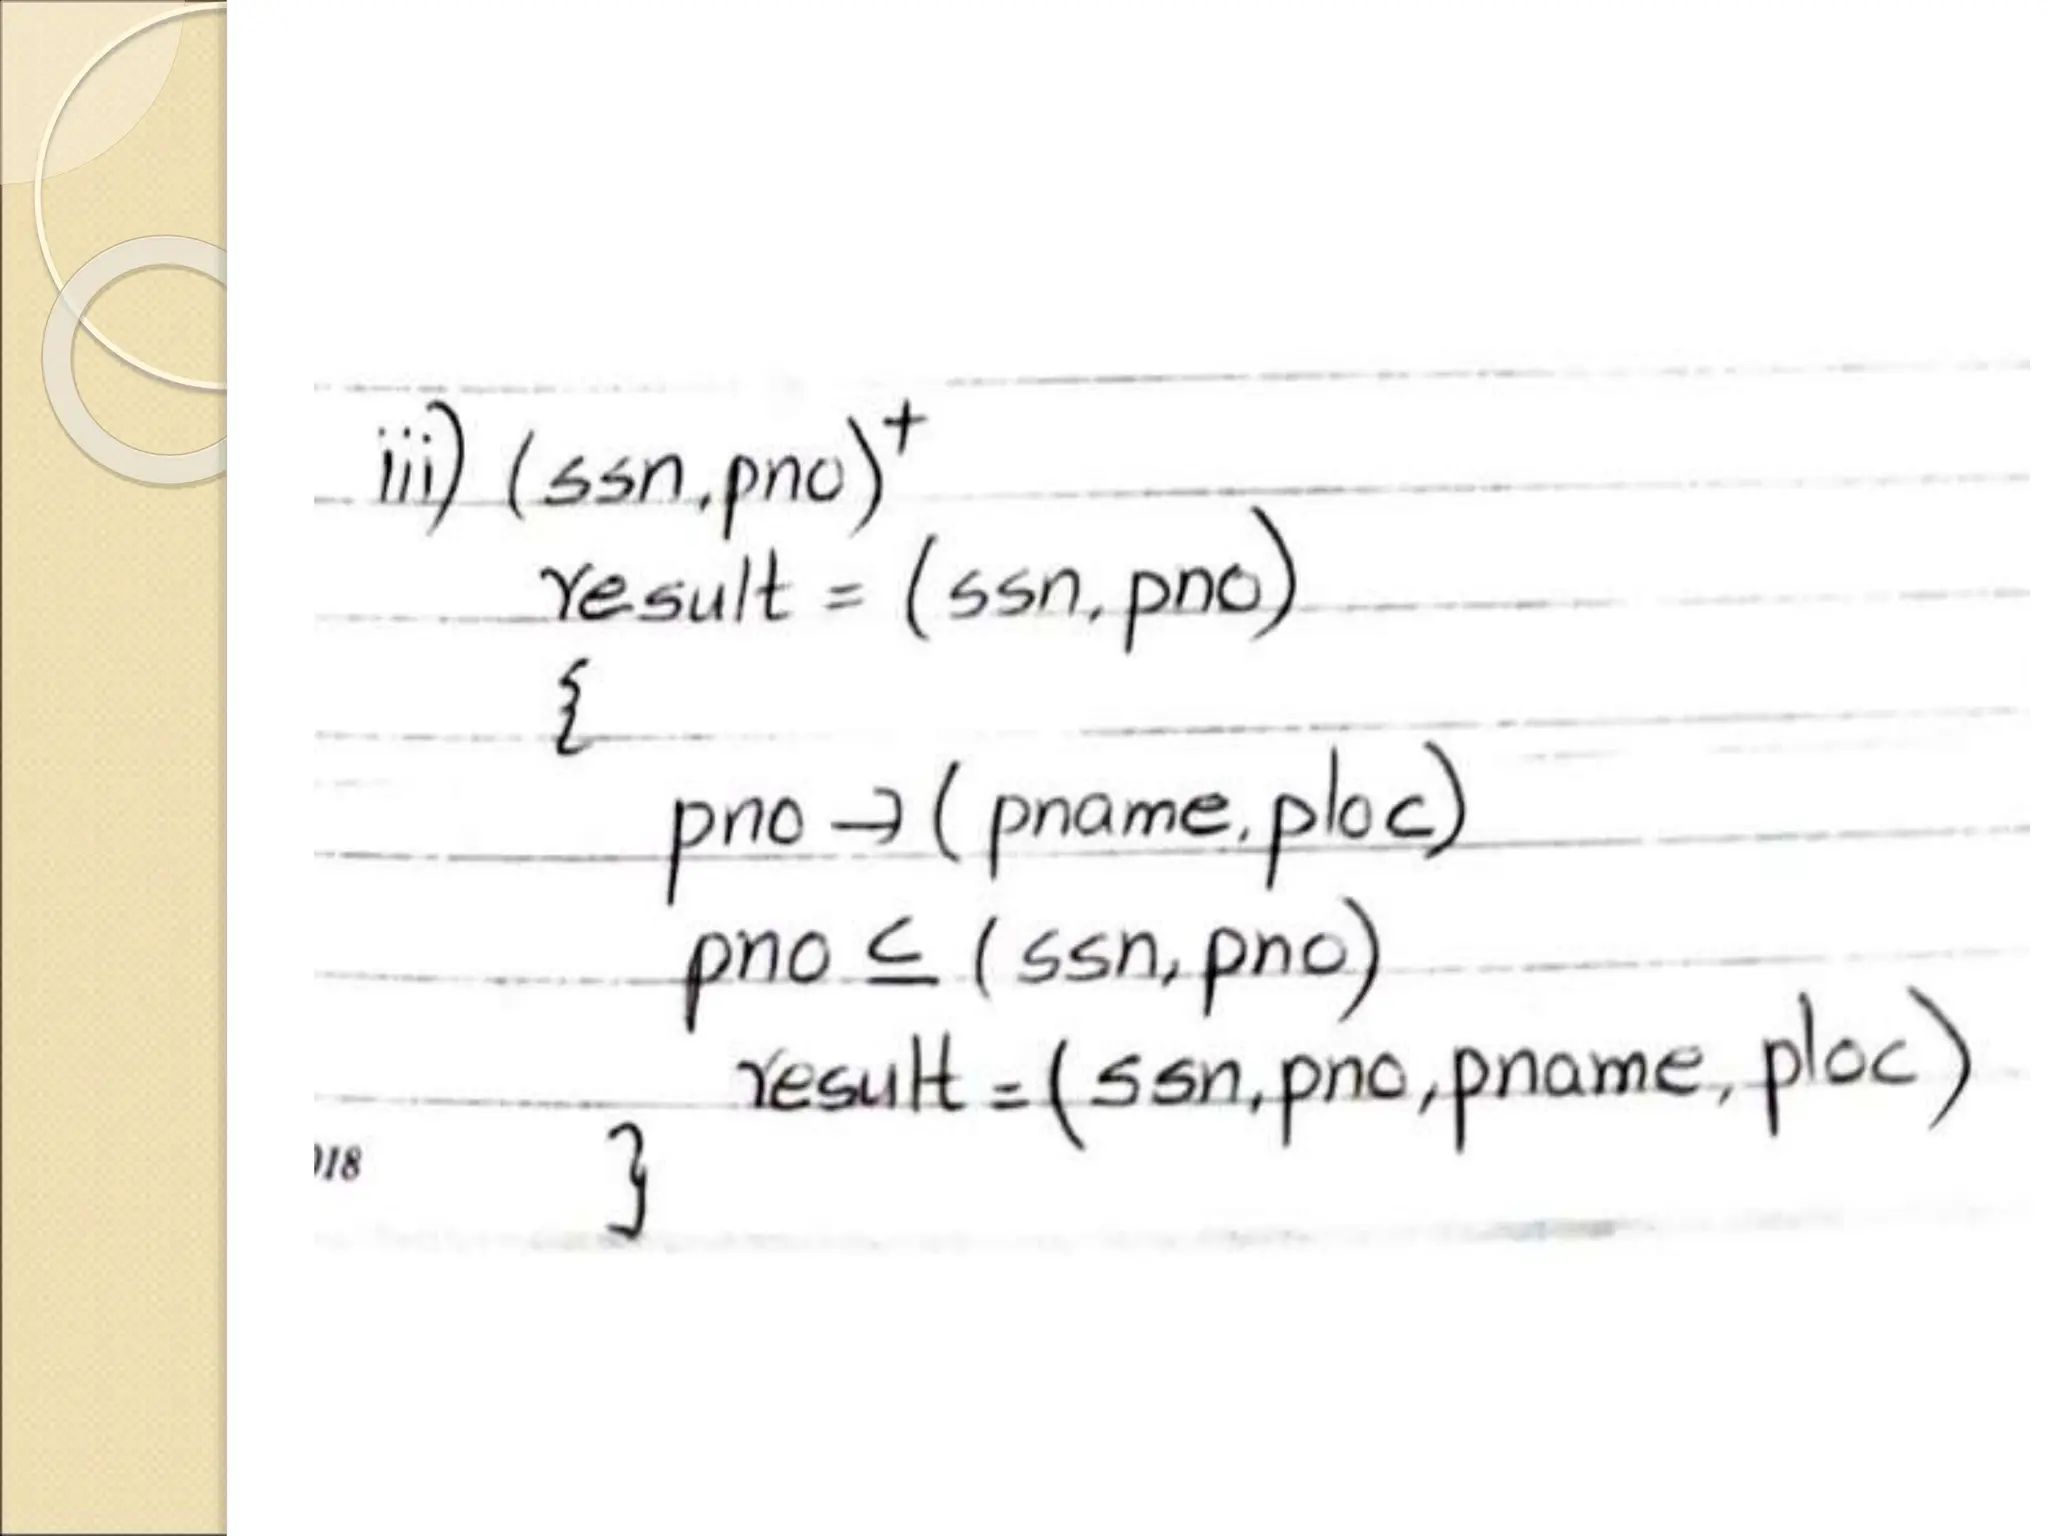 iii) (ssn, pno)⁺
result = (ssn, pno)
{
pno → (pname, ploc)
pno ⊆ (ssn, pno)
result = (ssn, pno, pname, ploc)
018
}